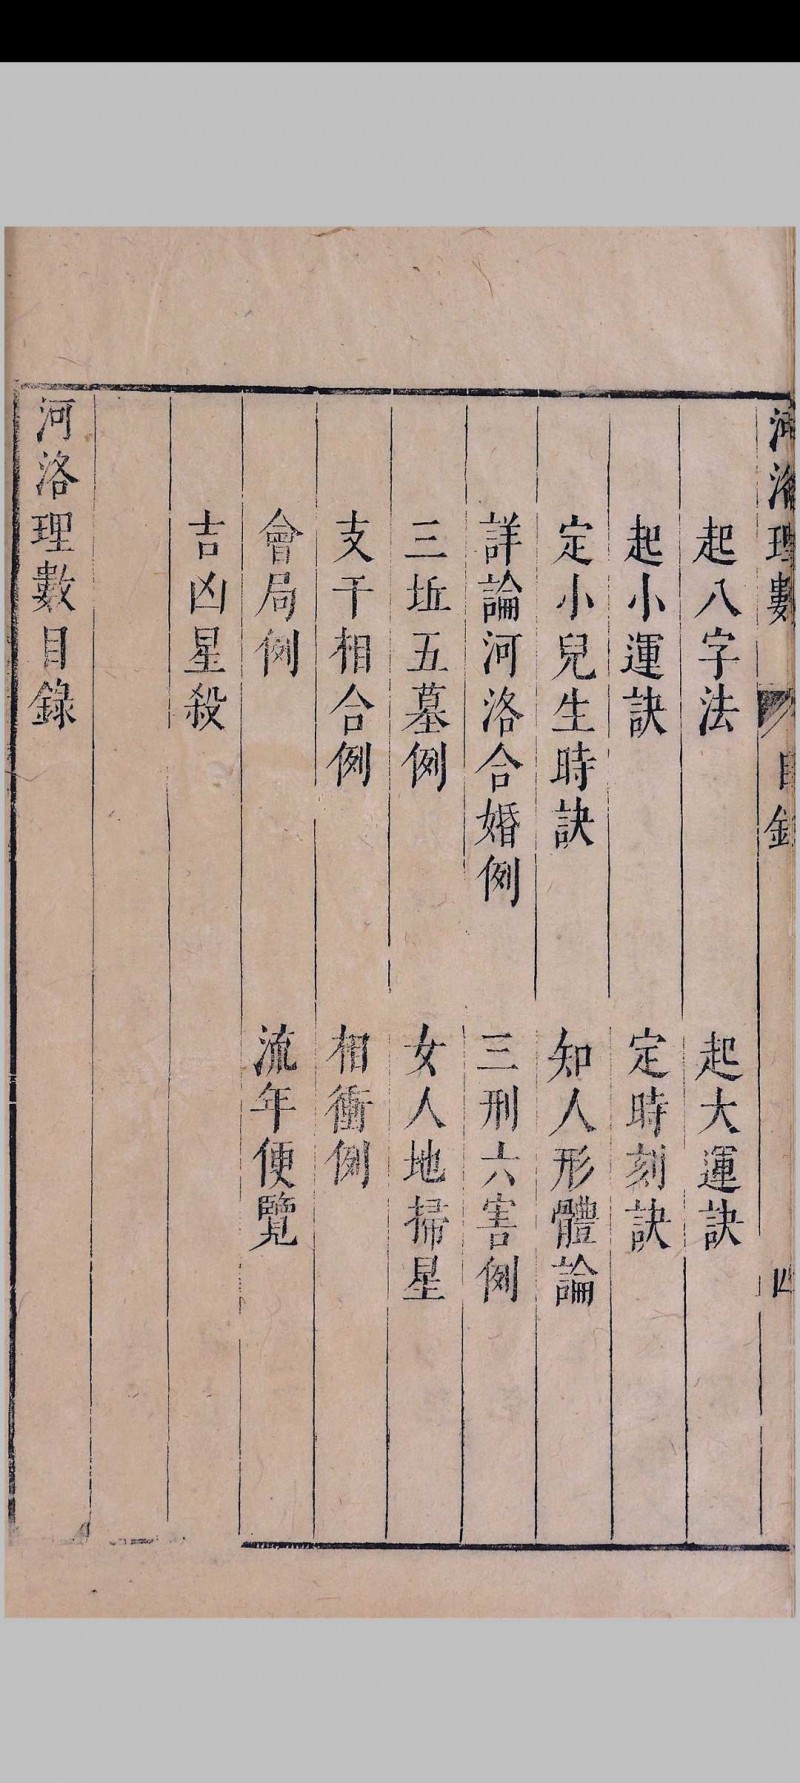 河洛理數
目錄
四
起八字法
起大運訣
起小運訣
定時刻訣
定小兒生時訣
知人形體論
詳論河洛合婚例
三刑六害例
三坵五墓例
女人地掃星
支干相合例
相衝例
會局例
流年便覽
吉凶星殺
河洛理數目錄